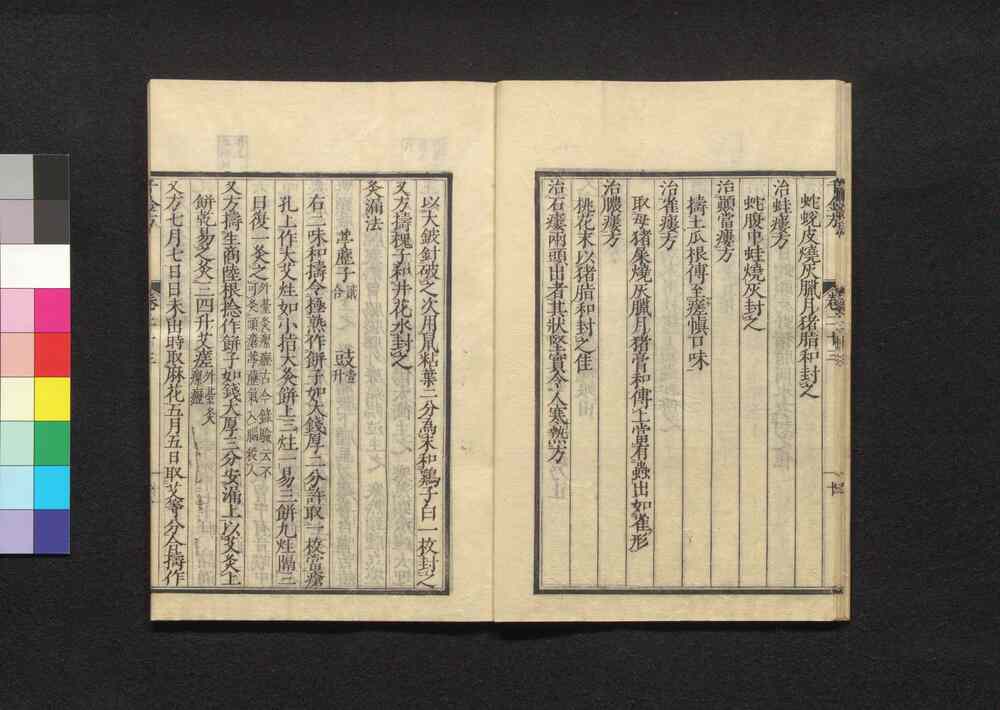 蛇蛻皮燒灰臘月猪脂和封之
治蛙瘻方
蛇腹中蛙燒灰封之
治顚當瘻方
擣土瓜根傅至瘥愼口味
治雀瘻方
取母猪屎燒灰臘月猪膏和傅上當有蟲出如雀形
治膿瘻方
桃花末以猪脂和封之佳
治石瘻兩頭出者其狀堅實令人寒熱方
以大鈹針破之次用鼠粘葉二分爲末和鷄子白一枚封之
又方擣槐子和井花水封之
灸漏法
葶藶子貳合 豉壹升
右二味和擣令極熟作餅子如大錢厚二分許取一枚當瘡
孔上作大艾炷如小指大灸餅上三炷一易三餅九炷隔三
日復一灸之外臺灸瘰癧古今錄驗云不可灸頭瘡葶藶氣入腦殺人
又方擣生商陸根捻作餅子如錢大厚三分安漏上以艾灸上
餅乾易之灸三四升艾瘥外臺灸瘰癧
又方七月七日日未出時取麻花五月五日取艾等分合擣作